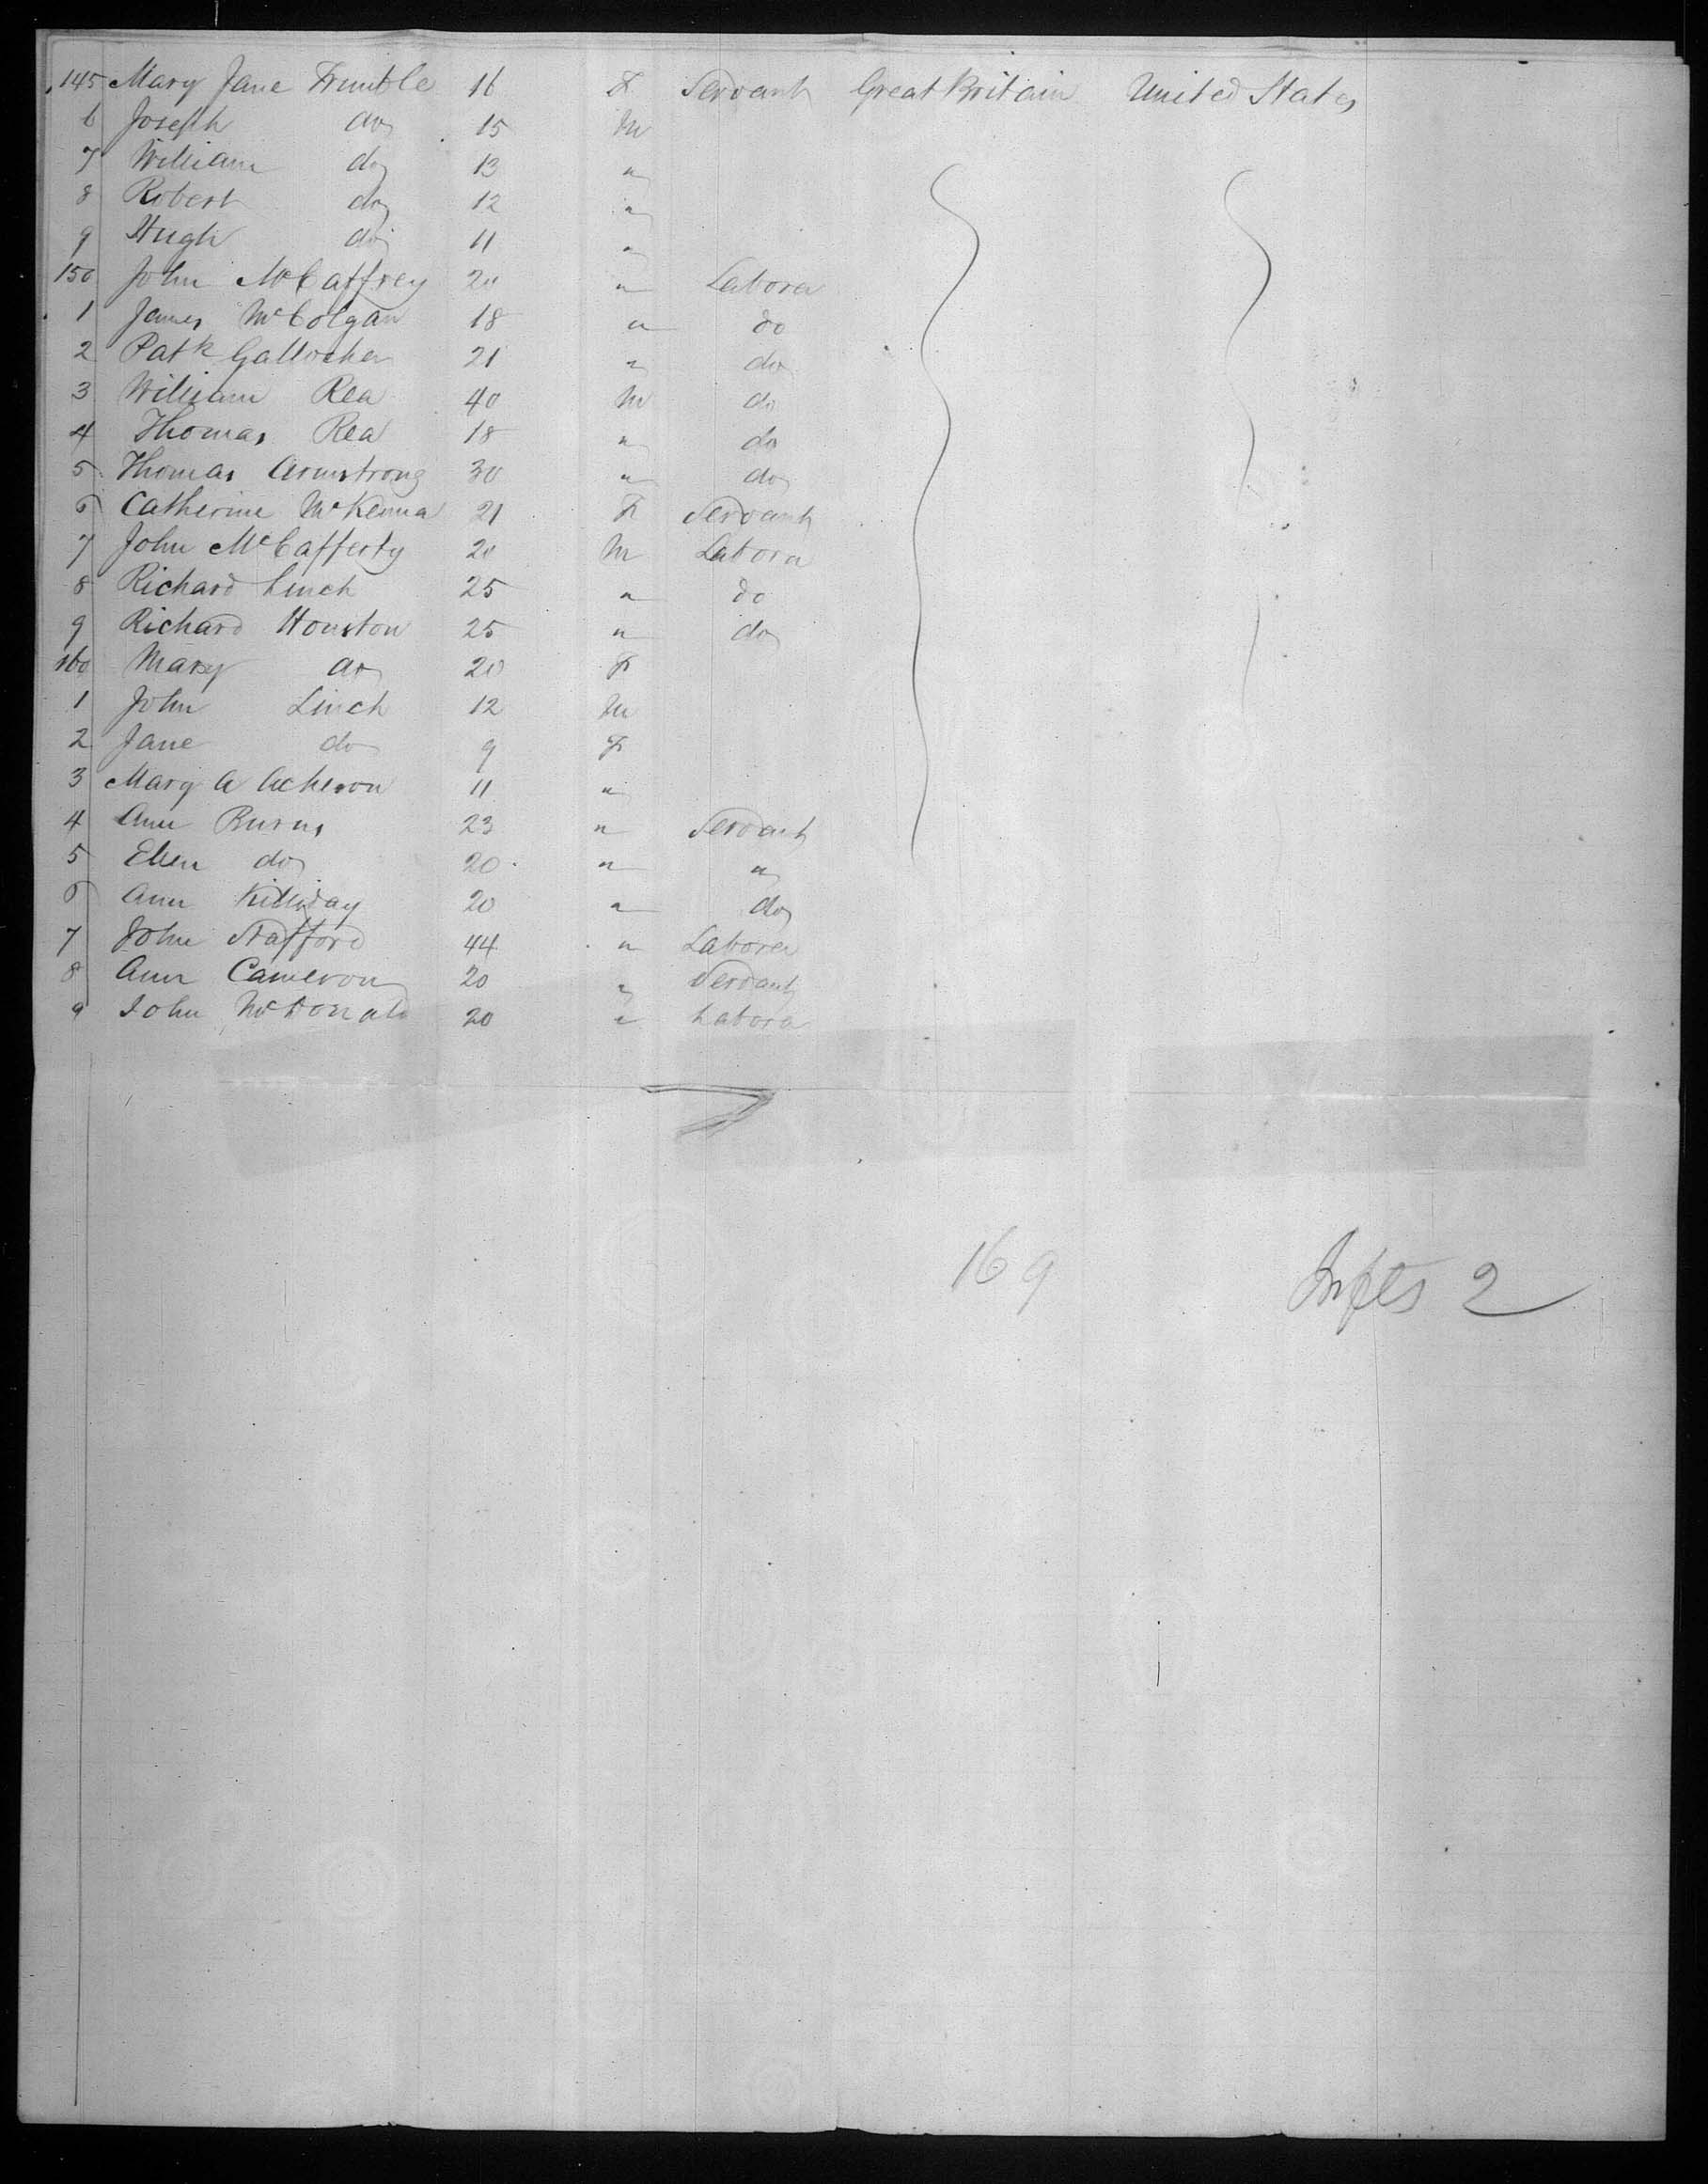 145 Mary Jane Trimble 16 F Servant Great Britain United States
6 Joseph do 15 M
7 William do 13 "
8 Robert do 12 "
9 Hugh do 11 "
150 John McCaffrey 20 " Laborer
1 James McColgan 18 " do
2 Patk Gallocher 21 " do
3 William Rea 40 M do
4 Thomas Rea 18 " do
5 Thomas Armstrong 30 " do
6 Catherine McKenna 21 F Servant
7 John McCafferty 20 M Laborer
8 Richard Linch 25 " do
9 Richard Houston 25 " do
160 Mary do 20 F
1 John Linch 12 M
2 Jane do 9 F
3 Mary A Acheson 11 "
4 Ann Burns 23 " Servant
5 Ellen do 20 " "
6 Ann Killiday 20 " do
7 John Stafford 44 " Laborer
8 Ann Cameron 20 " Servant
9 John McDonald 20 " Labora
169
Infts 2